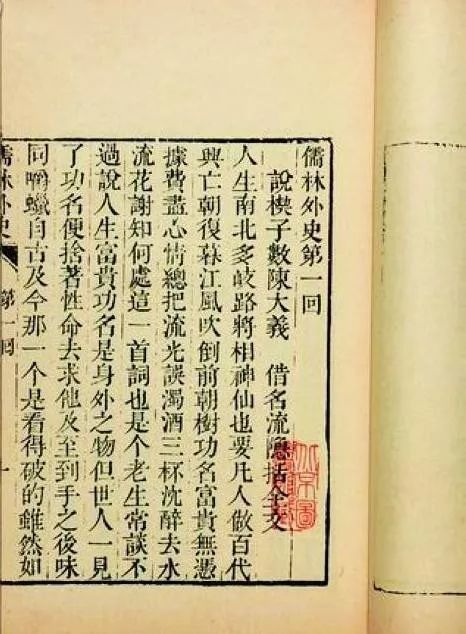 儒林外史第一回
說楔子敷陳大義 借名流隱括全文
人生南北多岐路將相神仙也要凡人做百代
興亡朝復暮江風吹倒前朝樹功名富貴無憑
據費盡心情總把流光誤濁酒三杯沈醉去水
流花謝知何處這一首詞也是个老生常談不
過說人生富貴功名是身外之物但世人一見
了功名便捨著性命去求他及至到手之後味
同嚼蠟自古及今那一个是看得破的雖然如
儒林外史 第一回 一